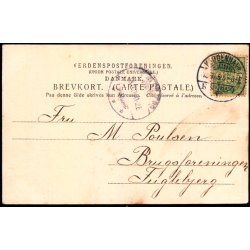 VERDENSPOSTFORENINGEN.
(UNION POSTALE UNIVERSELLE.)
DANMARK.
BREVKORT. (CARTE POSTALE.)
Paa denne Side skrives kun Adressen. Côté réservé à l'adresse.
Fru
M. Poulsen
Brugsforeningen
Fuglebjerg